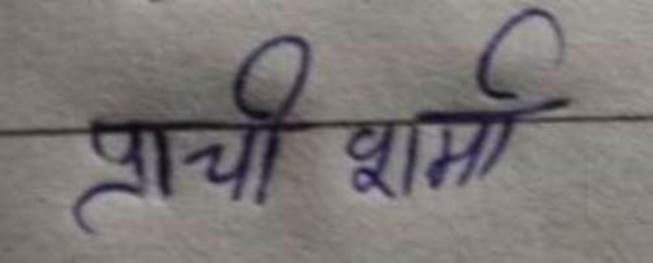 प्राची शर्मा